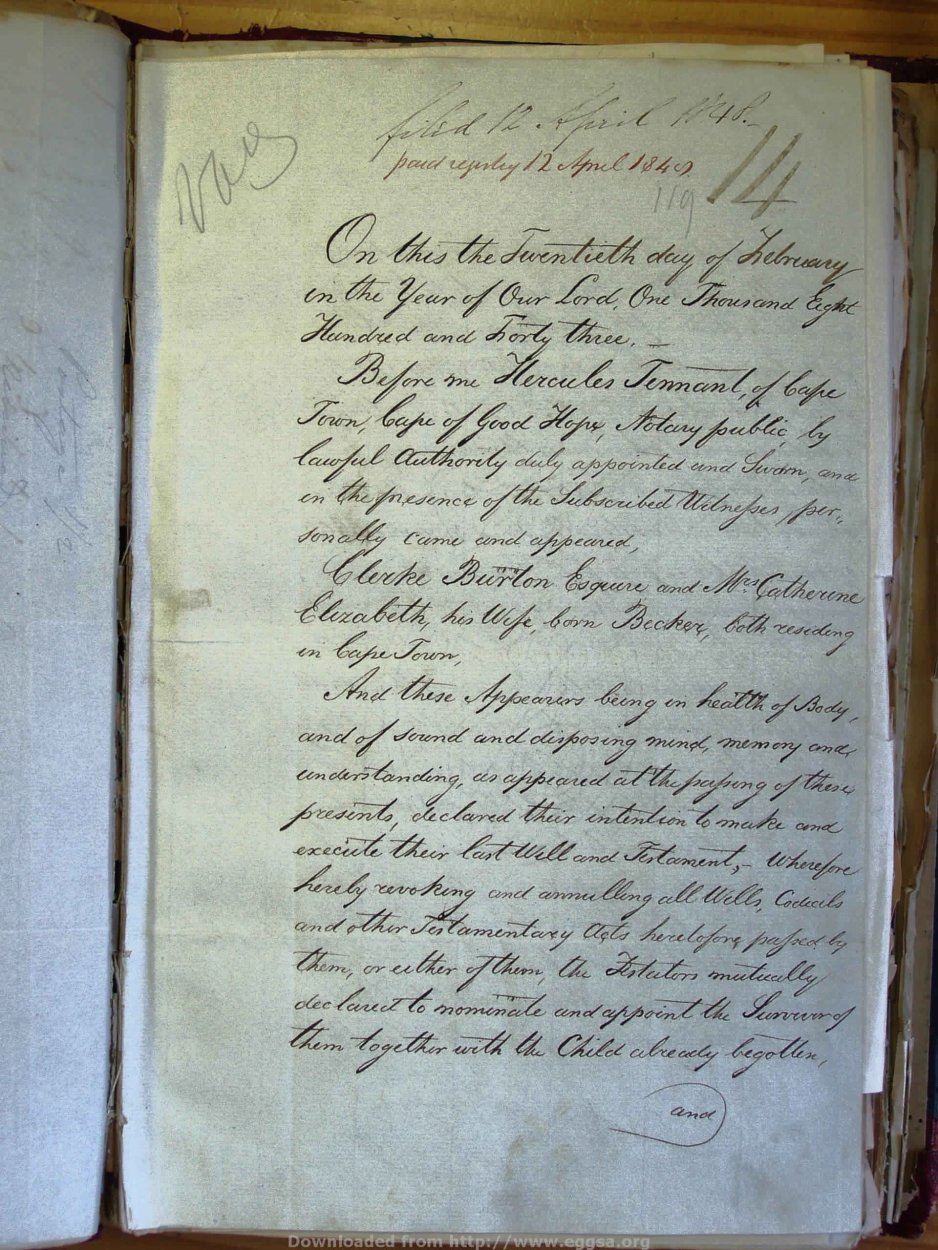 filed 12 April 1848.
paid registry 12 April 1848.
14
119
On this the Twentieth day of February
in the Year of Our Lord, One Thousand Eight
Hundred and Forty three. —
Before me Hercules Tennant, of Cape
Town, Cape of Good Hope, Notary public, by
lawful Authority duly appointed and Sworn, and
in the presence of the Subscribed Witnesses, per„
sonally came and appeared,
Clerke Burton Esquire and Mrs. Catherine
Elizabeth, his Wife, born Becker, both residing
in Cape Town,
And these Appearers being in health of Body,
and of sound and disposing mind, memory and
understanding, as appeared at the passing of these
presents, declared their intention to make and
execute their last Will and Testament,- Wherefore
hereby revoking and annulling all Wills, Codicils
and other Testamentary Acts heretofore passed by
them, or either of them, the Testators mutually
declared to nominate and appoint the Survivor of
them together with the Child already begotten,
and
Downloaded from http://www.eggsa.org